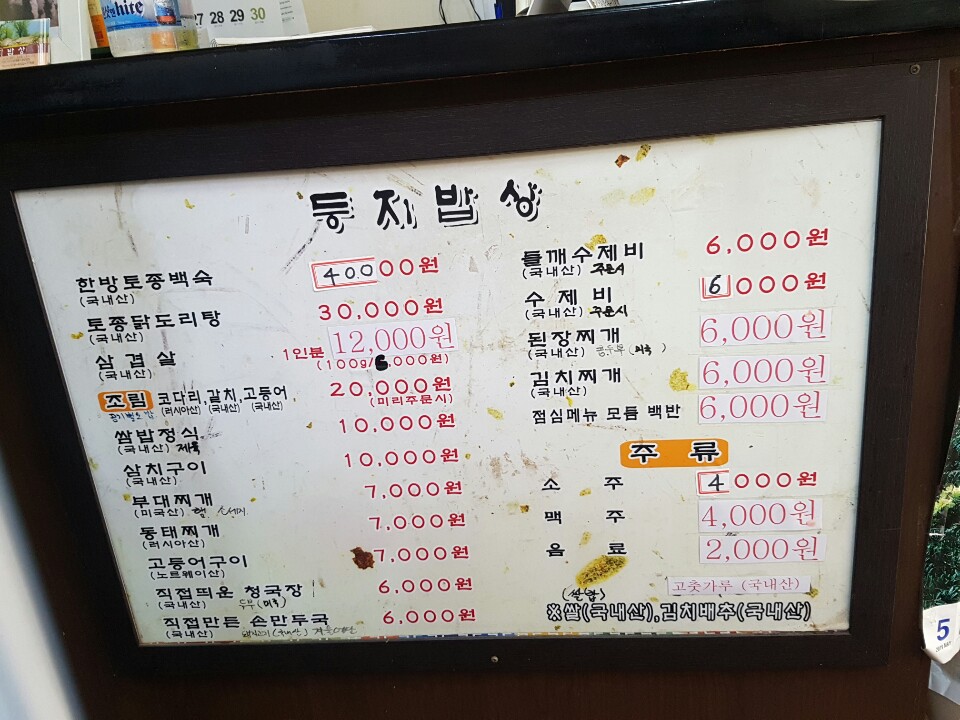 White
27 28 29 30
밥상
둥지밥상
한방토종백숙 40000원
(국내산)
토종닭도리탕 30,000원
(국내산)
삼겹살 1인분 12,000원
(국내산) (100g/6,000원)
조림 코다리,갈치,고등어 20,000원
(러시아산) (국내산) (국내산) (미리주문시)
쌈밥정식 10,000원
(국내산) 제육
삼치구이 10,000원
(국내산)
부대찌개 7,000원
(미국산) 햄 소세지
동태찌개 7,000원
(러시아산)
고등어구이 7,000원
(노르웨이산)
직접띄운 청국장 6,000원
(국내산) 두부(미국)
직접만든 손만두국 6,000원
(국내산) (국내산)
들깨수제비 6,000원
(국내산) 주문시
수제비 6000원
(국내산) 주문시
된장찌개 6,000원
(국내산)
김치찌개 6,000원
(국내산)
점심메뉴 모듬 백반 6,000원
주류
소주 4000원
맥주 4,000원
음료 2,000원
고춧가루 (국내산)
※쌀(국내산),김치배추(국내산)
5